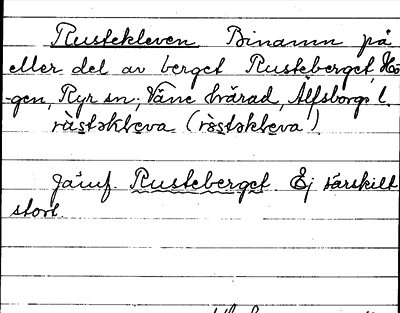 Rustekleven Binamn på
eller del av berget Rusteberget, Hö-
gen, Ryr sn; Väne härad, Älfsborgs l.
ràstəkleva (ròstəkleva)
Jämf. Rusteberget. Ej särskilt
stort.